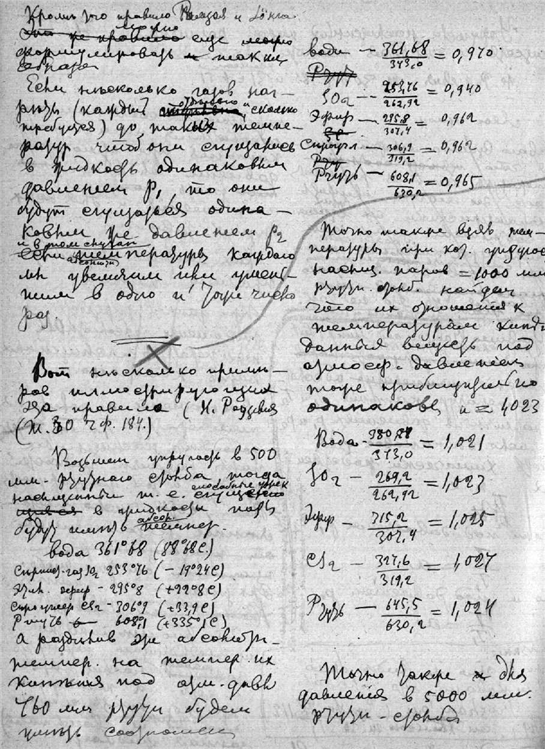 Кромѣ того правило Рамзая и Юнга
можно
формулировать и такимъ
образомъ
Если нѣсколько газовъ наг-
рѣть (каждый отдѣльно, сколько
требуется) до такихъ темпе-
ратуръ чтобъ они сгущались
въ жидкость одинаковым
давленіем p1, то они
будут сгущаться одина-
ковым же давленіем p2
и в том случаѣ
если температуру каждаго
мы увеличим или умень-
шим в одно и тоже число
раз.
Вот нѣсколько примѣ-
ров иллюстрирующих
эти правила (
(т. 30 ч. ф. 184.)
Возьмем упругость в 500
мм. ртутного столба тогда
насыщенный т. е.
в жидкость пар
будут имѣть абсол. темпер.
вода 361°68 (88°68 С.)
(- 19°24 С)
эфир - 295°8 (+22°8 С)
CS2 - 306°9 (+33,9 С)
Ртуть - 608,1 (+335°1 С)
а раздѣлив эти абсолютн.
темпер. на темпер. их
кипѣнія под атм. давл.
760 мм ртути будем
имѣть
вода — 361,68/373,0 = 0,970
SO2 — /262,92 = 0,940
Эфир — 295,8/307,4 = 0,962
— 306,9/319,2 = 0,962
Ртуть — 608,1/630,2 = 0,965
Точно также взяв тем-
пературы при кот. упругость
насыщ. паров = 1000 мм
ртутн. столба найдем
что их отношения к
температурам кипѣн.
данных веществ под
атмосф. давленіем
тоже приблизительно
одинаковы и = 1,023
Вода — 380,78/373,0 = 1,021
SO2 — 269,2/262,92 = 1,023
Эфир — 315,2/307,4 = 1,025
CS2 — 327,6/319,2 = 1,027
Ртуть — 645,5/630,2 = 1,024
Точно также и для
давленія в 5000 мм.
ртутн. столба